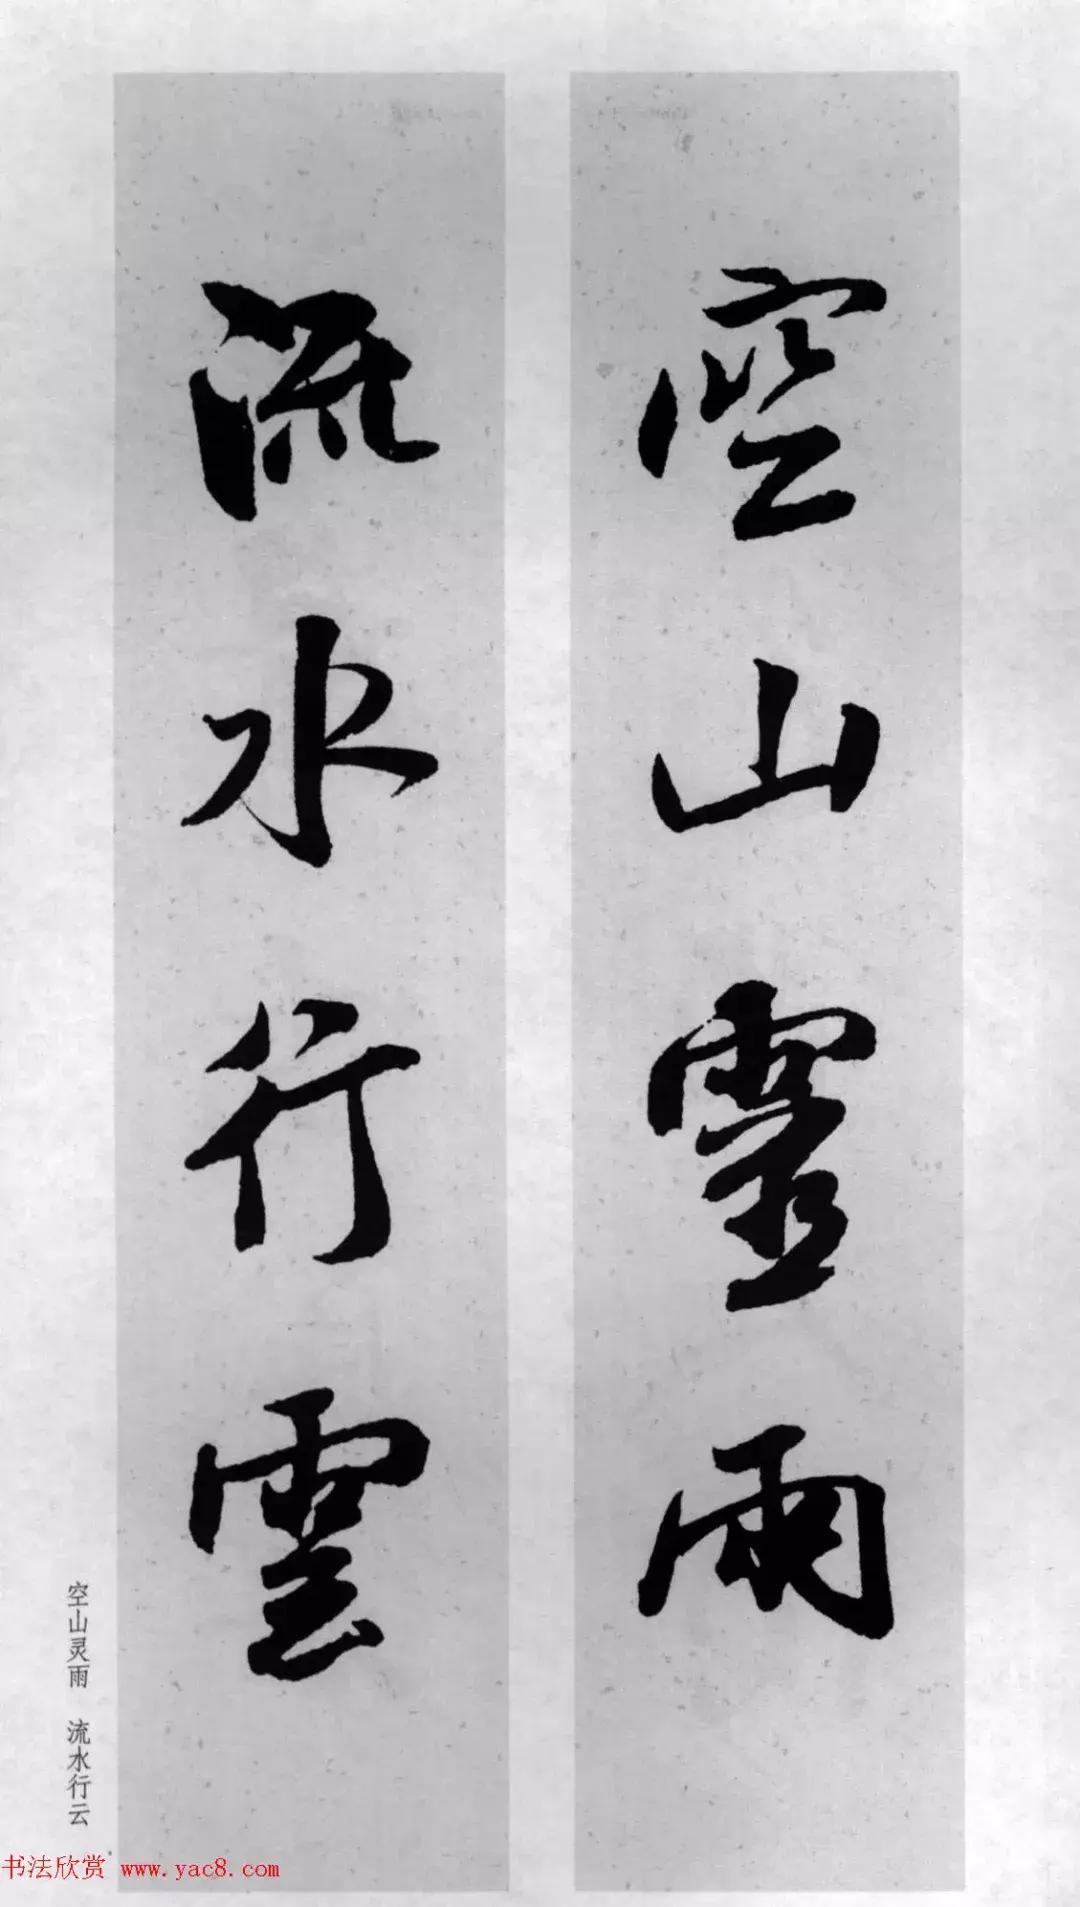 空山靈雨
流水行雲
空山灵雨 流水行云
书法欣赏 www.yac8.com